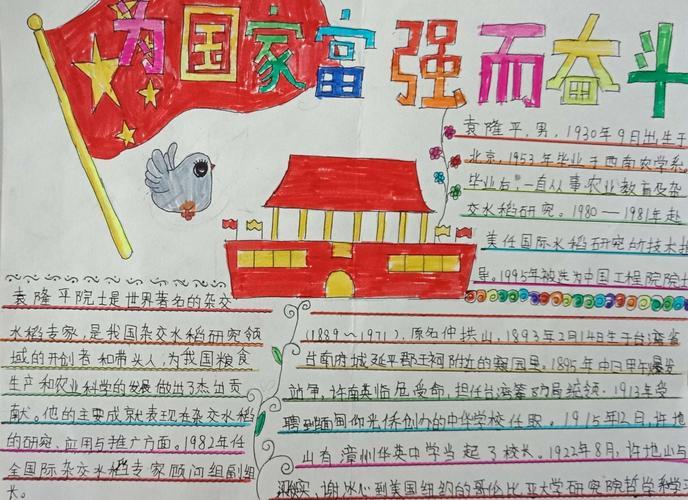 为国家富强而奋斗
袁隆平,男,1930年9月出生于
北京,1953年毕业于西南农学系。
毕业后,一直从事农业教育及杂
交水稻研究。1980—1981年赴
美任国际水稻研究所技术指
导。1995年被选为中国工程院院士
袁隆平院士是世界著名的杂交
水稻专家,是我国杂交水稻研究领
域的开创者和带头人,为我国粮食
生产和农业科学的发展做出了杰出贡
献。他的主要成就表现在杂交水稻
的研究、应用与推广方面。1982年任
全国际杂交水稻专家顾问组副组
长。
(1889~1971),原名仲拱山,1893年2月14日生于台湾省
台南府城延平郡王祠附近的窥园里。1895年中日甲午爆发
站争,许南英临危受命,担任台湾筹防局统领。1913年受
聘到缅甸仰光侨创办的中华学校任职。1915年12月,许地
山有漳州华英中学当起了校长。1922年8月,许地山与
谢冰心到美国纽约的哥伦比亚大学研究院哲学